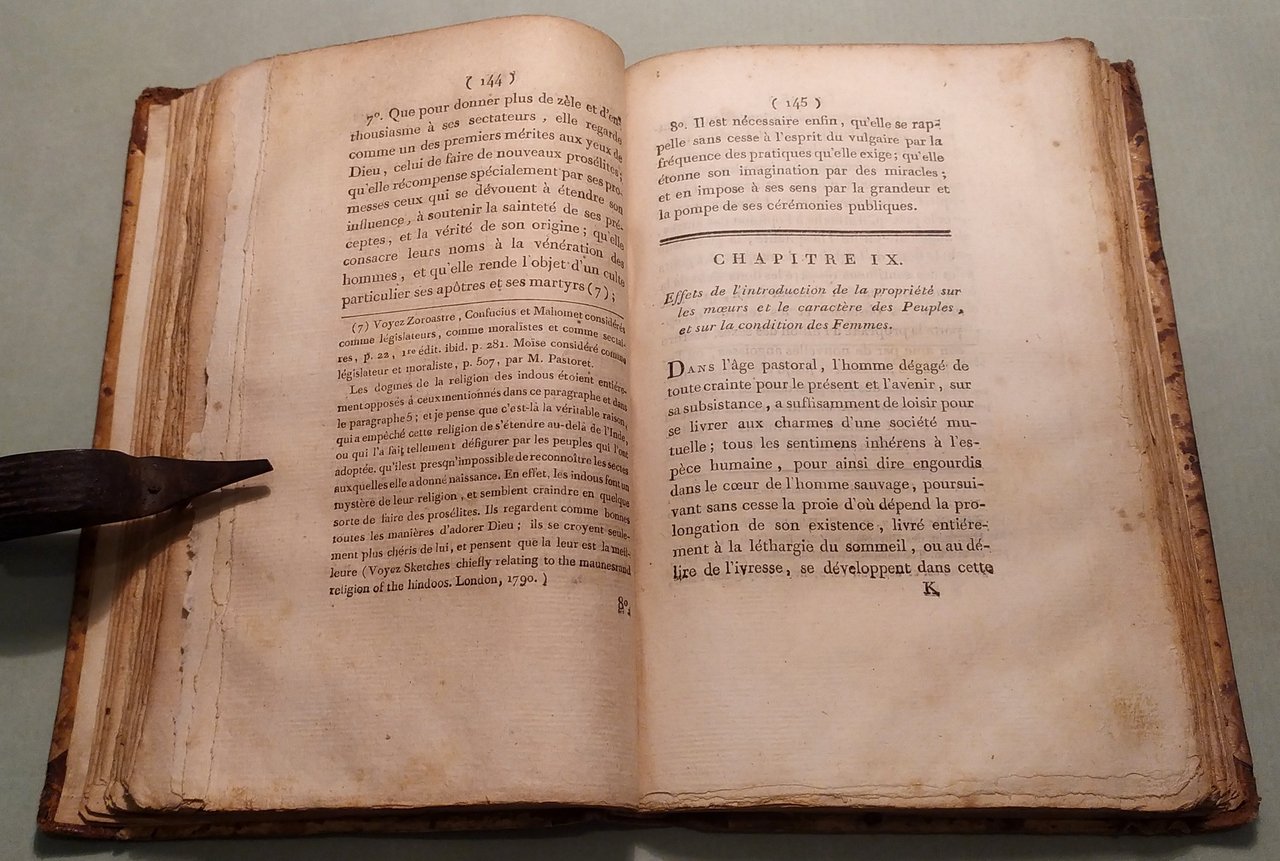 ( 144 )
7°. Que pour donner plus de zèle et d'en-
thousiasme à ses sectateurs , elle regarde
comme un des premiers mérites aux yeux de
Dieu , celui de faire de nouveaux prosélites ;
qu'elle récompense spécialement par ses pro-
messes ceux qui se dévouent à étendre son
influence , à soutenir la sainteté de ses pré-
ceptes , et la vérité de son origine ; qu'elle
consacre leurs noms à la vénération des
hommes , et qu'elle rende l'objet d'un culte
particulier ses apôtres et ses martyrs (7) ;
(7) Voyez Zoroastre , Confucius et Mahomet considérés
comme législateurs , comme moralistes et comme sectai-
res , p. 22 , 1re édit. ibid. p. 281. Moïse considéré comme
législateur et moraliste , p. 507 , par M. Pastoret.
Les dogmes de la religion des indous étoient entiére-
ment opposés à ceux mentionnés dans ce paragraphe et dans
le paragraphe 5 ; et je pense que c'est-là la véritable raison,
qui a empêché cette religion de s'étendre au-delà de l'Inde,
ou qui l'a fait tellement défigurer par les peuples qui l'ont
adoptée, qu'il est presqu'impossible de reconnoître les sectes
auxquelles elle a donné naissance. En effet, les indous font un
mystère de leur religion , et semblent craindre en quelque
sorte de faire des prosélites. Ils regardent comme bonnes
toutes les manières d'adorer Dieu ; ils se croyent seule-
ment plus chéris de lui, et pensent que la leur est la meil-
leure ( Voyez Sketches chiefly relating to the maunesrand
religion of the hindoos. London, 1790. )
8°.
( 145 )
8°. Il est nécessaire enfin , qu'elle se rap-
pelle sans cesse à l'esprit du vulgaire par la
fréquence des pratiques qu'elle exige ; qu'elle
étonne son imagination par des miracles ;
et en impose à ses sens par la grandeur et
la pompe de ses cérémonies publiques.
CHAPITRE IX.
Effets de l'introduction de la propriété sur
les mœurs et le caractère des Peuples ,
et sur la condition des Femmes.
DANS l'âge pastoral , l'homme dégagé de
toute crainte pour le présent et l'avenir , sur
sa subsistance , a suffisamment de loisir pour
se livrer aux charmes d'une société mu-
tuelle ; tous les sentimens inhérens à l'es-
pèce humaine , pour ainsi dire engourdis
dans le cœur de l'homme sauvage , poursui-
vant sans cesse la proie d'où dépend la pro-
longation de son existence , livré entiére-
ment à la léthargie du sommeil , ou au dé-
lire de l'ivresse , se développent dans cette
K